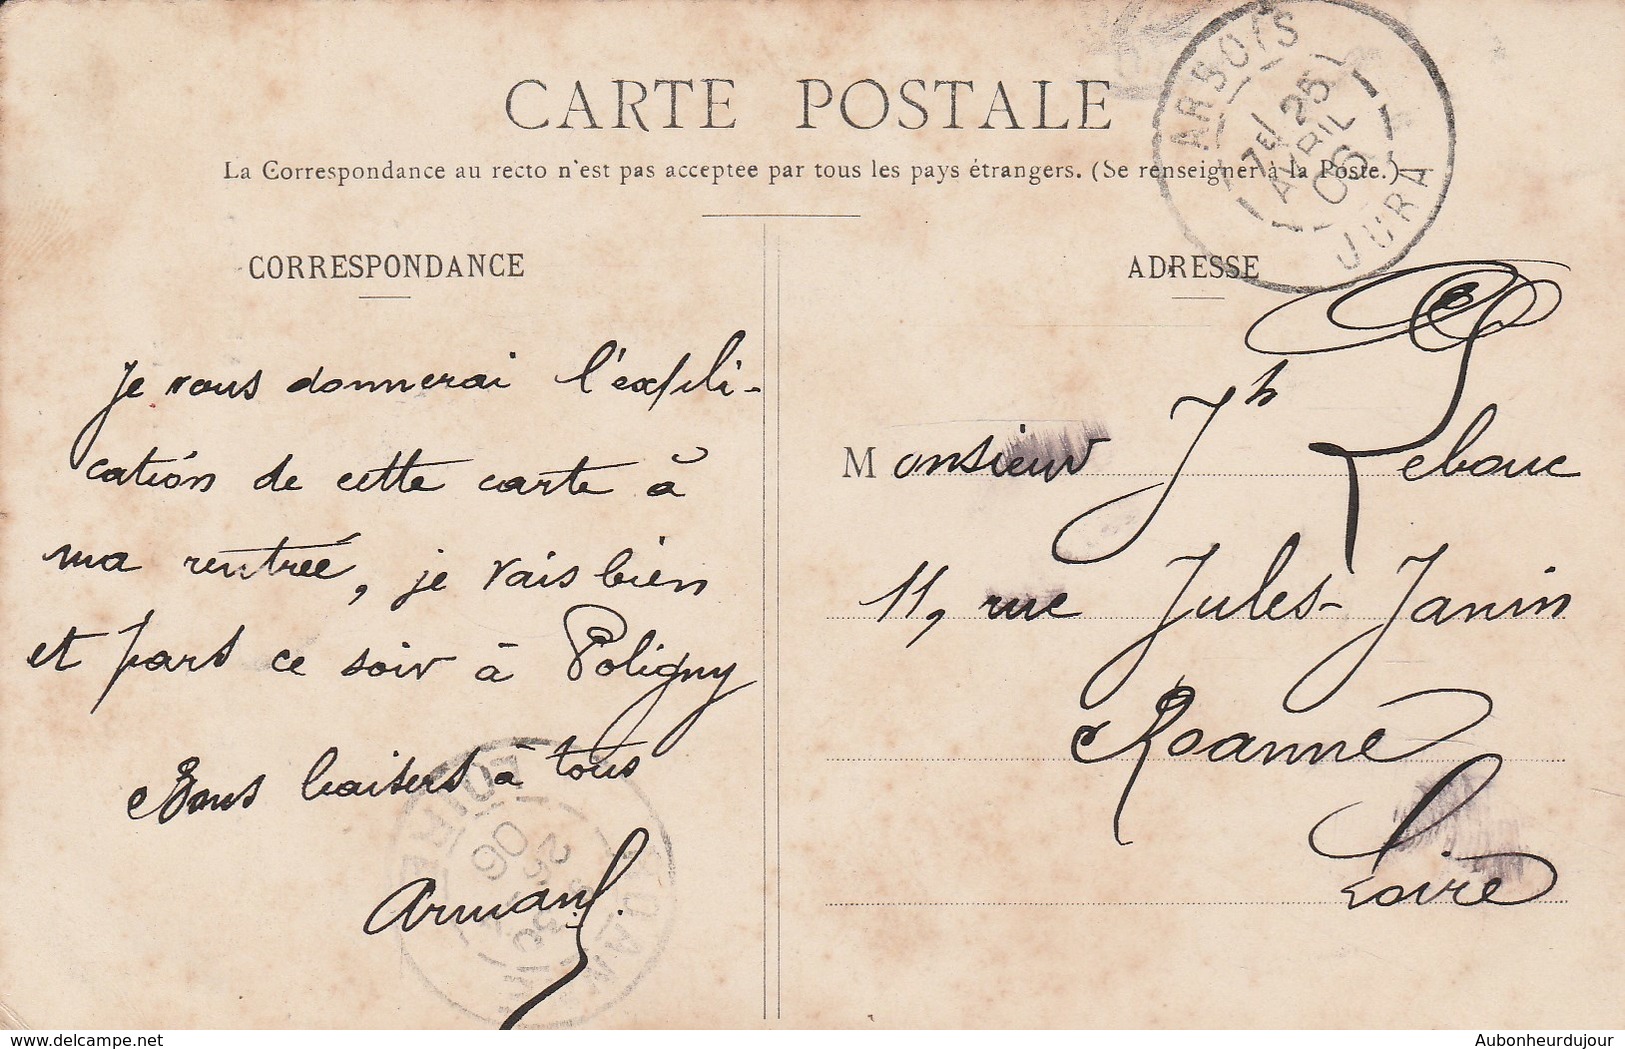 CARTE POSTALE
La Correspondance au recto n'est pas acceptee par tous les pays étrangers. (Se renseigner à la Poste.)
ARBOIS
7E 25
AVRIL
06
JURA
CORRESPONDANCE
Je vous donnerai l'expli-
cation de cette carte à
ma rentrée, je vais bien
et pars ce soir à Poligny
Bons baisers à tous
Armand.
ADRESSE
Monsieur Jh Lebouc
11, rue Jules-Janin
Roanne
Loire
06
delcampe.net
Aubonheurdujour